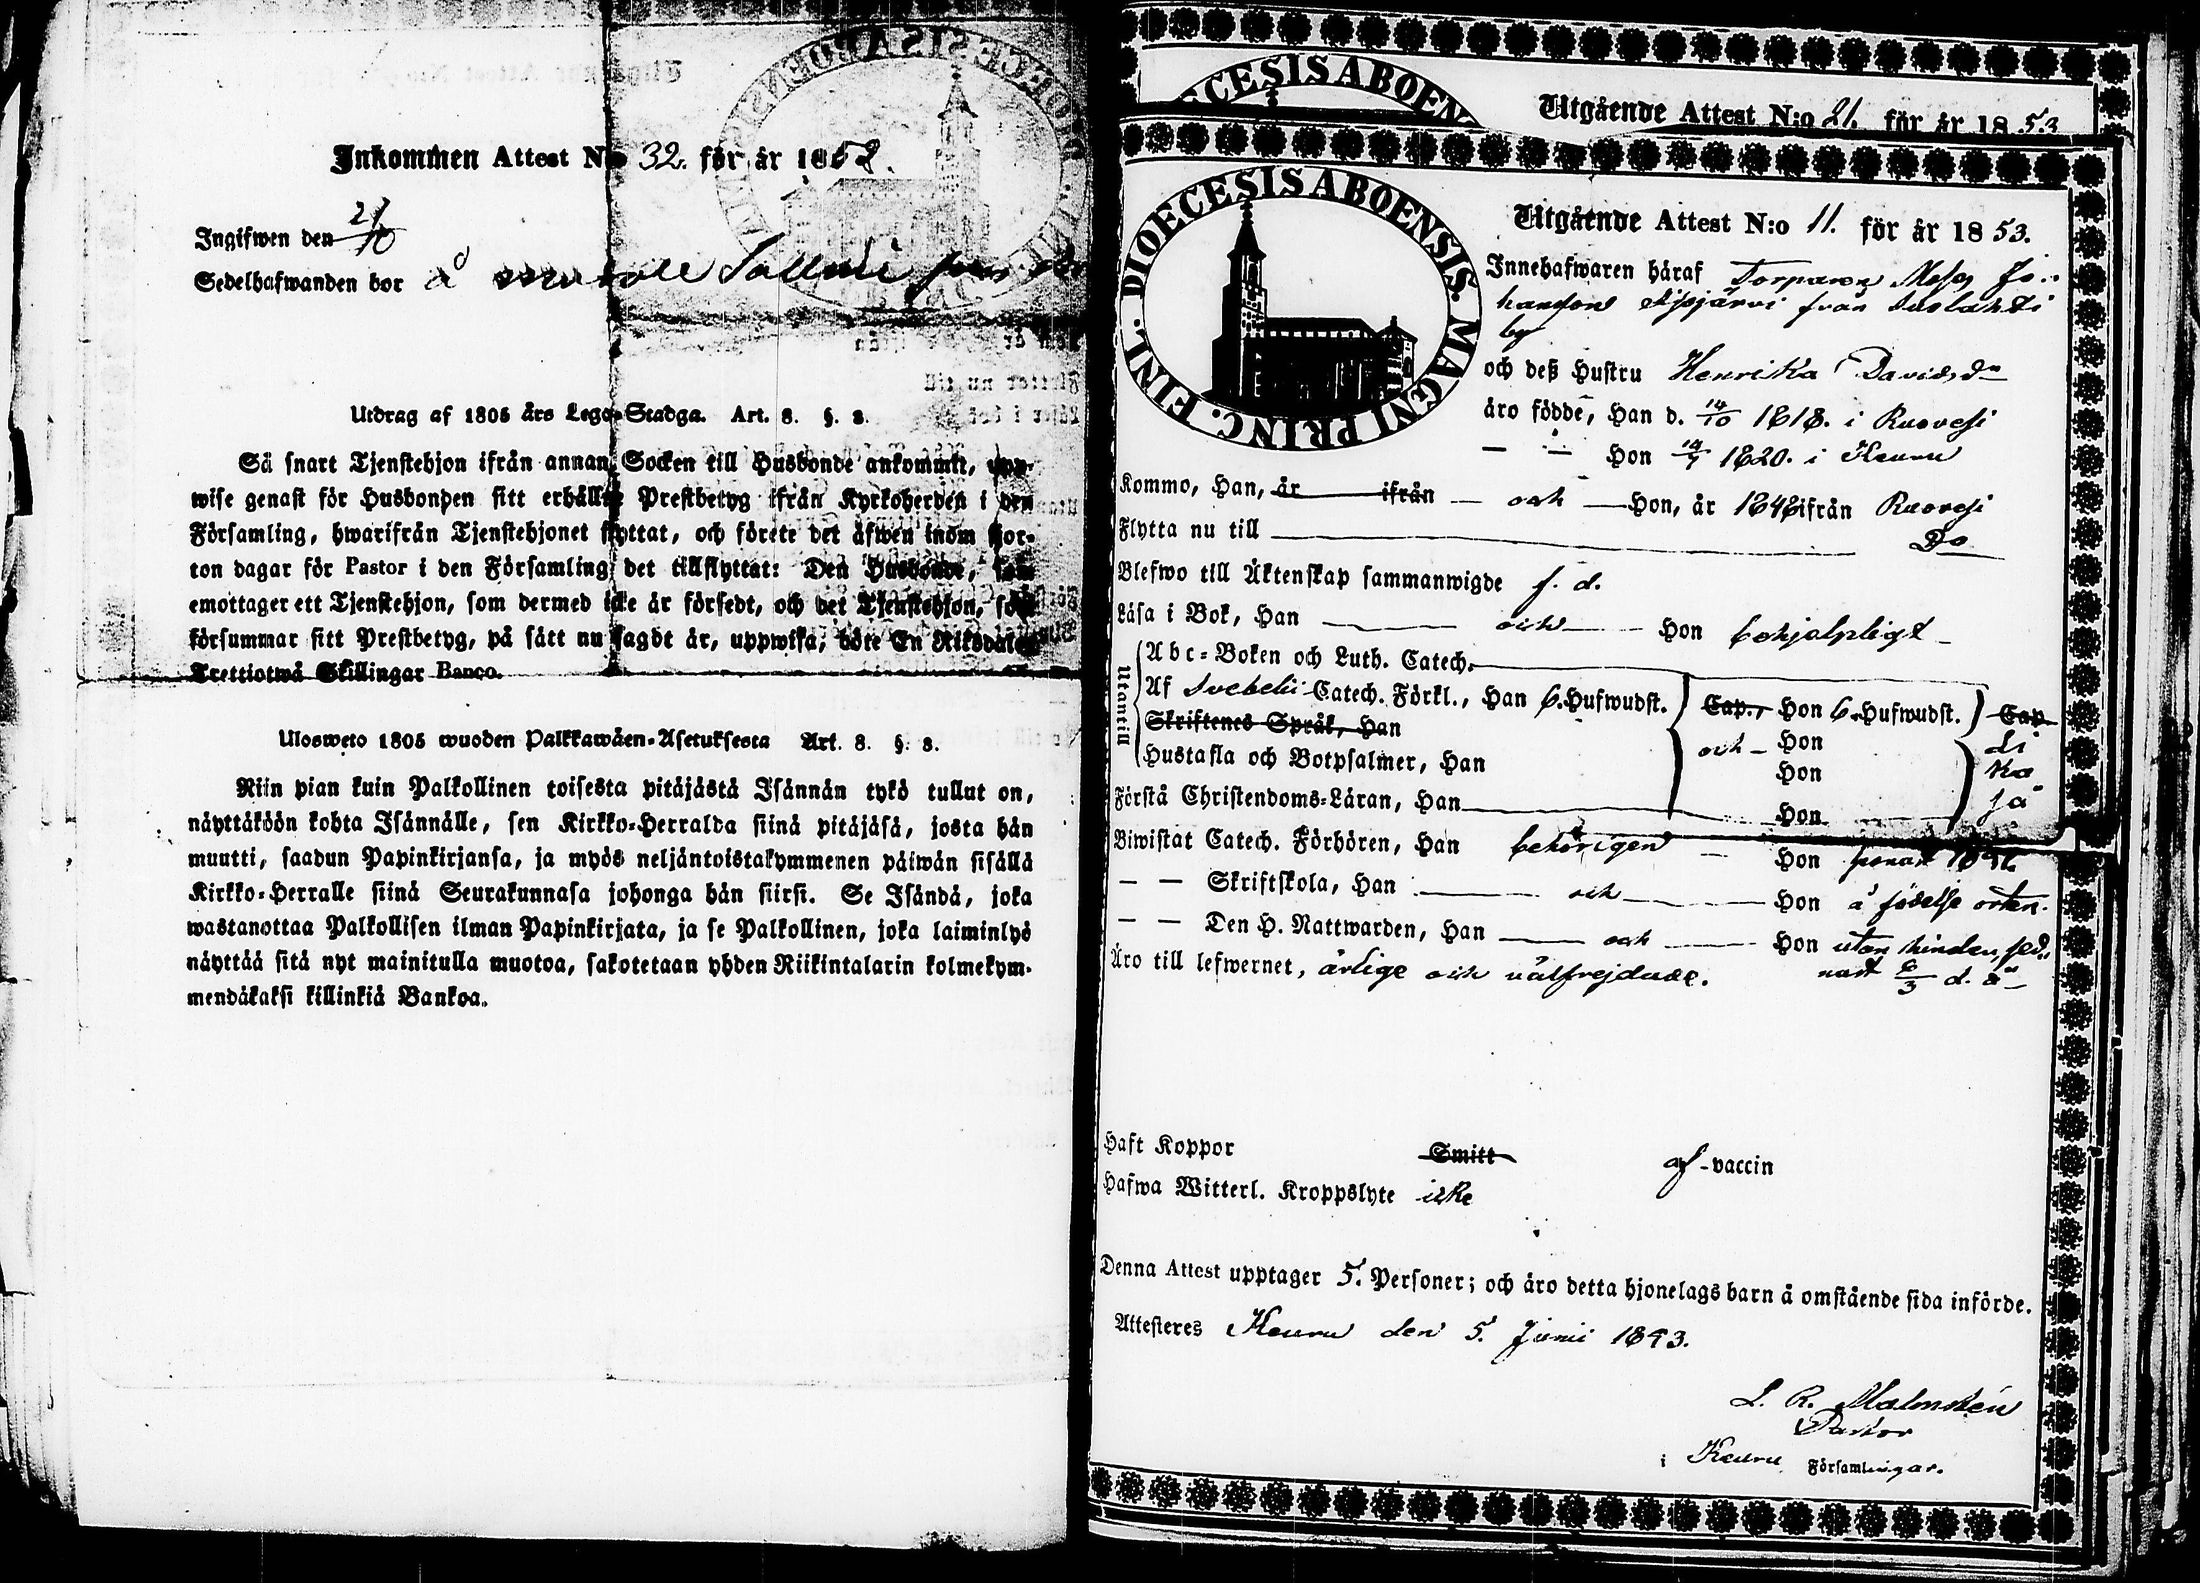 Inkommen Attest No 32. för år 1852.
Ingifwen den 21/10
Sedelhafwanden bor å
Utdrag af 1805 års Lego-Stadga. Art. 8. §. 8.
Så snart Tjenstehjon ifrån annan Socken till Husbonde ankommit, upp-
wise genast för Husbonden sitt erhållne Prestbetyg ifrån Kyrkoherden i den
Församling, hwarifrån Tjenstehjonet flyttat, och förete det äfwen inom fjor-
ton dagar för Pastor i den Församling det tillflyttat: Den Husbonde, som
emottager ett Tjenstehjon, som dermed icke är försedt, och det Tjenstehjon, som
försummar sitt Prestbetyg, på sätt nu sagdt är, uppwisa, böte En Riksdaler
Trettiotwå Skillingar Banco.
Ulosweto 1805 wuoden Palkkawäen-Asetuksesta Art. 8. §. 8.
Niin pian kuin Palkollinen toisesta pitäjästä Isännän tykö tullut on,
näyttäköön kohta Isännälle, sen Kirkko-Herralda siinä pitäjäsä, josta hän
muutti, saadun Papinkirjansa, ja myös neljäntoistakymmenen päiwän sisällä
Kirkko-Herralle siinä Seurakunnasa johonga hän siirsi. Se Isändä, joka
wastanottaa Palkollisen ilman Papinkirjata, ja se Palkollinen, joka laiminlyö
näyttää sitä nyt mainitulla muotoa, sakotetaan yhden Riikintalarin kolmekym-
mendäkaksi killinkiä Bankoa.
Utgående Attest N:o 21. för år 1853
DIOECESIS ABOENSIS. MAGNI PRINC. FINL.
Utgående Attest N:o 11. för år 1853.
Innehafwaren häraf Torparen Jo-
hansson från
by
och deß Hustru Henrika Davidsdr
äro födde, Han d. 14/10 1818. i Ruovesi
— — Hon 1820. i Keuru
Kommo, Han, är ifrån — och — Hon, år 1846 ifrån Ruovesi
Flytta nu till Do
Blefwo till Äktenskap sammanwigde f. d.
Läsa i Bok, Han och Hon behjelpligt
Utantill
Abc-Boken och Luth. Catech.
Af Svebelii Catech. Förkl., Han 6. Hufwudst. Cap., Hon 6. Hufwudst. Cap.
Skriftenes Språk, Han och — Hon di
Hustafla och Botpsalmer, Han Hon to
Förstå Christendoms-Läran, Han Hon
Biwistat Catech. Förhören, Han behörigen — Hon
— — Skriftskola, Han och Hon å födelse orten.
— — Den H. Nattwarden, Han och Hon utan hinder, sed-
nast 6/3 d. å
Äro till lefwernet, ärlige och välfrejdade.
Haft Koppor Smitt af - vaccin
Hafwa Witterl. Kroppslyte icke
Denna Attest upptager 5. Personer; och äro detta hjonelags barn å omstående sida införde.
Attesteres Keuru den 5. Junii 1853.
L. R. Malmstén
Pastor
i Keuru Församlingar.